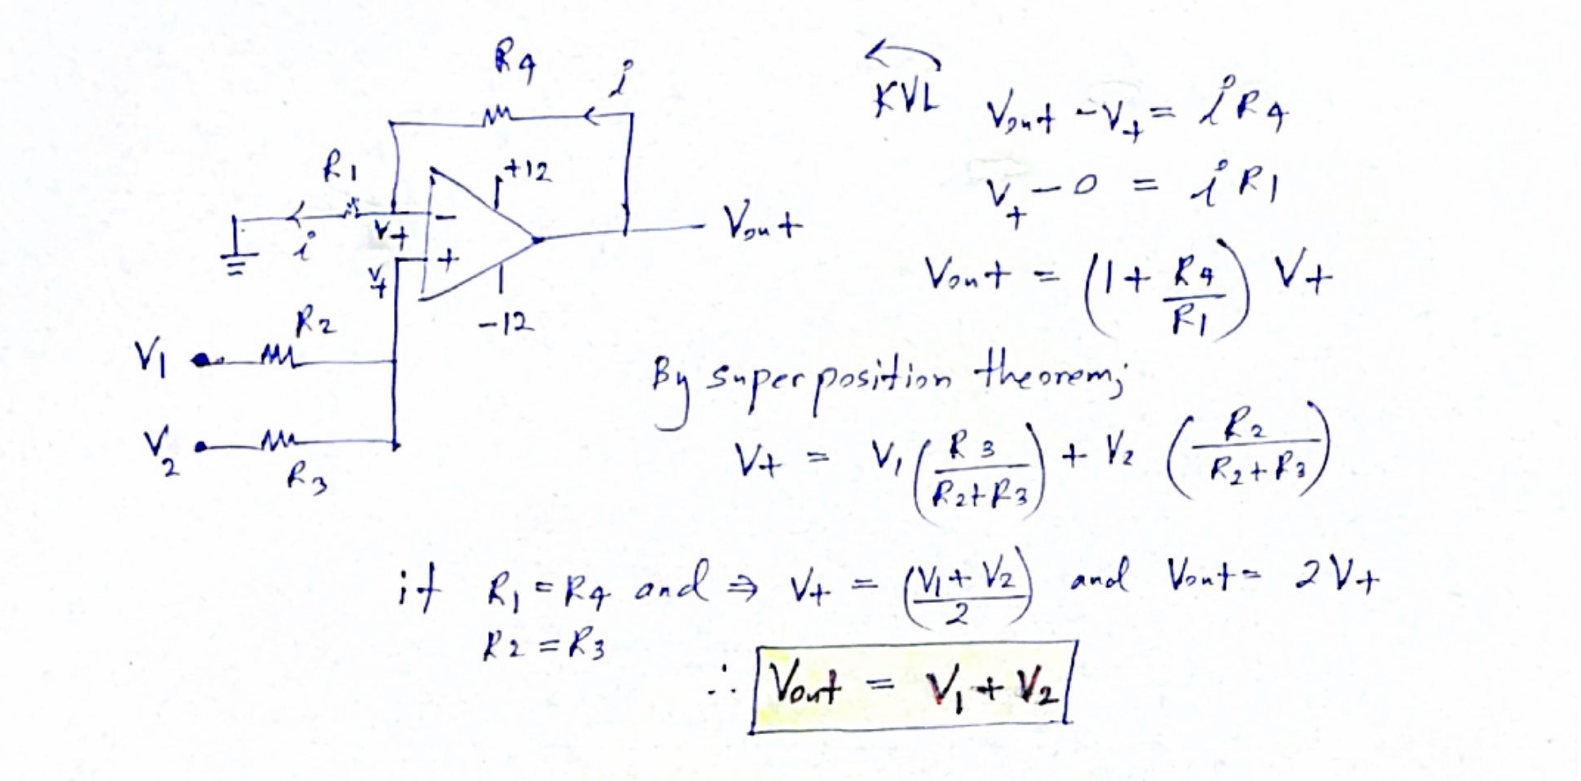 R4
i
R1
+12
V+
−
i
V+
+
Vout
-12
R2
V1
V2
R3
KVL
Vout - V+ = iR4
V+ - 0 = iR1
Vout = (1 + R4/R1) V+
By superposition theorem;
V+ = V1 (R3/(R2+R3)) + V2 (R2/(R2+R3))
if R1 = R4 and ⇒ V+ = (V1+V2)/2 and Vout = 2V+
R2 = R3
∴ Vout = V1 + V2